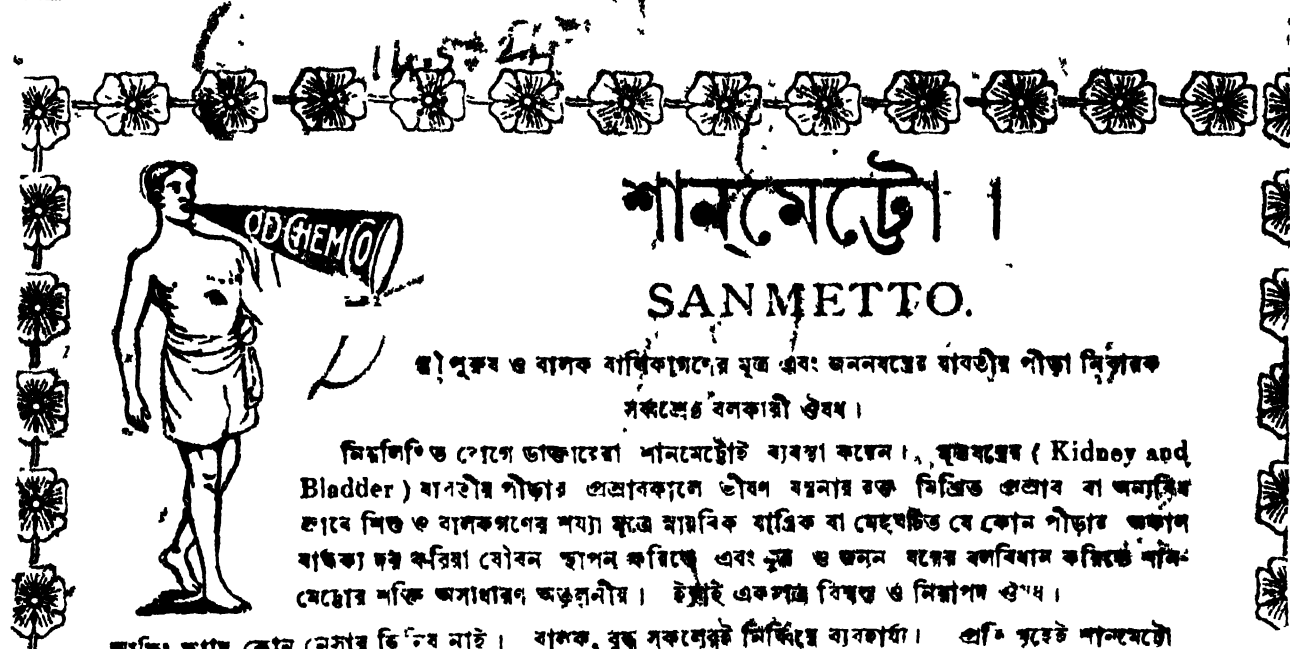 OD CHEM CO
শান্‌মেট্টো ।
SANMETTO.
স্ত্রী পুরুষ ও বালক বালিকাগণের মূত্র এবং জননযন্ত্রের যাবতীয় পীড়া নিবারক
সর্ব্বশ্রেষ্ঠ বলকারী ঔষধ ।
নিম্নলিখিত রোগে ডাক্তারেরা শানমেট্টোই ব্যবস্থা করেন । মূত্রযন্ত্রের ( Kidney and
Bladder ) যাবতীয় পীড়ার প্রস্রাবকালে ভীষণ যন্ত্রনার রক্ত মিশ্রিত প্রস্রাব বা অন্যবিধ
স্রাবে শিশু ও বালকগণের শয্যা মূত্রে স্নায়বিক যান্ত্রিক বা মেহঘটিত যে কোন পীড়ার অকাল
বার্দ্ধক্য দূর করিয়া যৌবন স্থাপন করিতে এবং মূত্র ও জনন যন্ত্রের বলবিধান করিতে শান-
মেট্টোর শক্তি অসাধারণ অতুলনীয় । ইহাই একমাত্র বিশ্বস্ত ও নিরাপদ ঔষধ ।
কোন নেসার জিনিষ নাই । বালক, বৃদ্ধ সকলেরই নির্ব্বিঘ্নে ব্যবহার্য্য । প্রতি গৃহেই শানমেট্টো